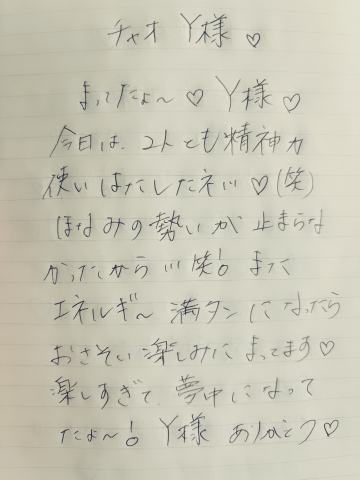 チャオ Y様 ♡
まってたょ〜 ♡ Y様 ♡
今日は、2人とも精神力
使いはたしたネ!!! ♡ (笑)
ほなみの勢いが止まらな
かったから !!! 笑! また
エネルギ〜 満タンになったら
おさそい楽しみにまってます♡
楽しすぎて、夢中になって
たょ〜! Y様 ありがとつ♡